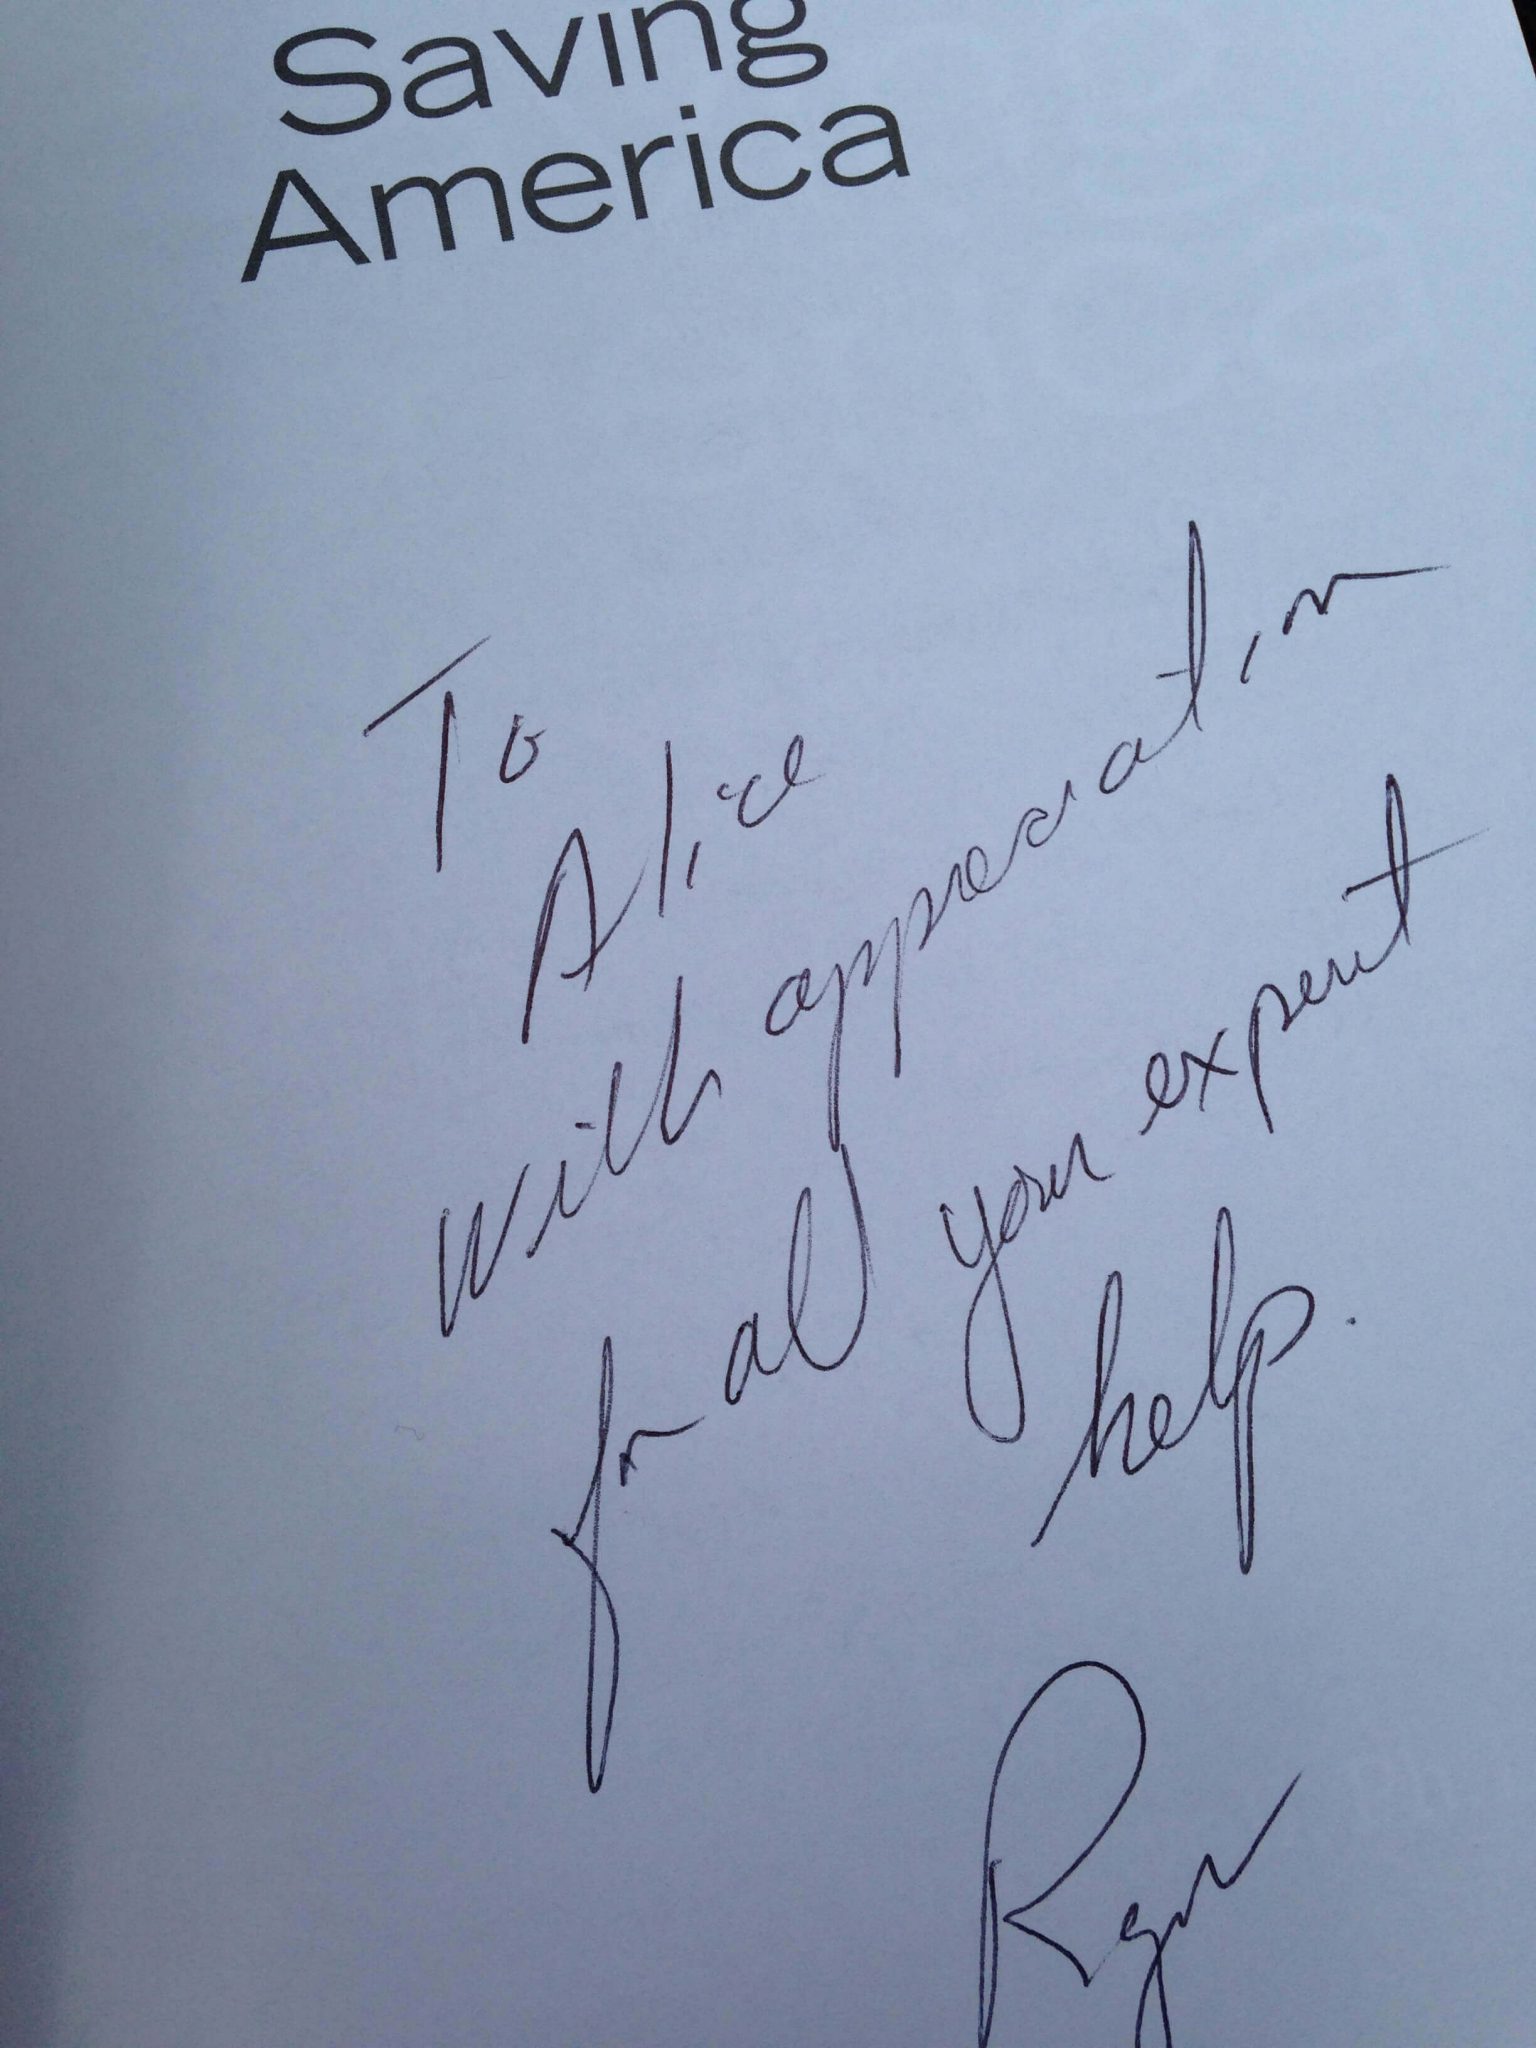 Saving
America
To
Alice
with appreciation
for all your expert
help.